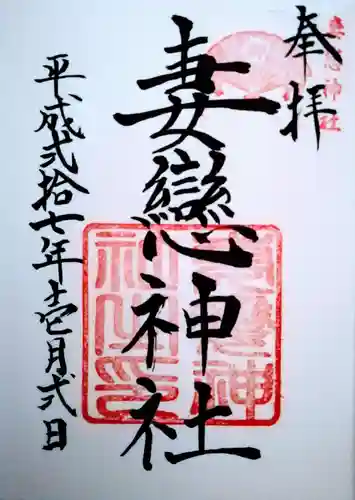 奉拝
妻戀神社
平成弐拾七年壱月弐日
妻恋神社